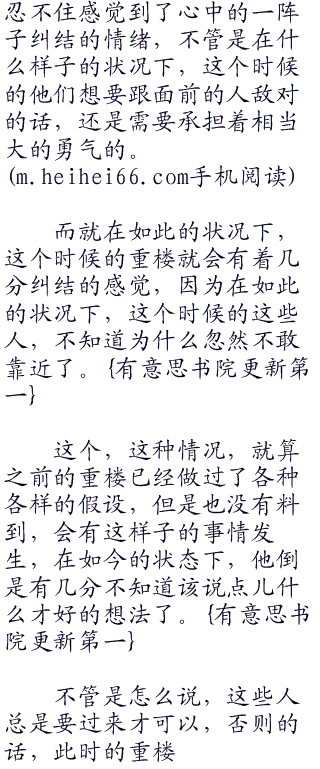 忍不住感觉到了心中的一阵
子纠结的情绪，不管是在什
么样子的状况下，这个时候
的他们想要跟面前的人敌对
的话，还是需要承担着相当
大的勇气的。
(m.heihei66.com手机阅读)
而就在如此的状况下，
这个时候的重楼就会有着几
分纠结的感觉，因为在如此
的状况下，这个时候的这些
人，不知道为什么忽然不敢
靠近了。{有意思书院更新第
一}
这个，这种情况，就算
之前的重楼已经做过了各种
各样的假设，但是也没有料
到，会有这样子的事情发
生，在如今的状态下，他倒
是有几分不知道该说点儿什
么才好的想法了。{有意思书
院更新第一}
不管是怎么说，这些人
总是要过来才可以，否则的
话，此时的重楼